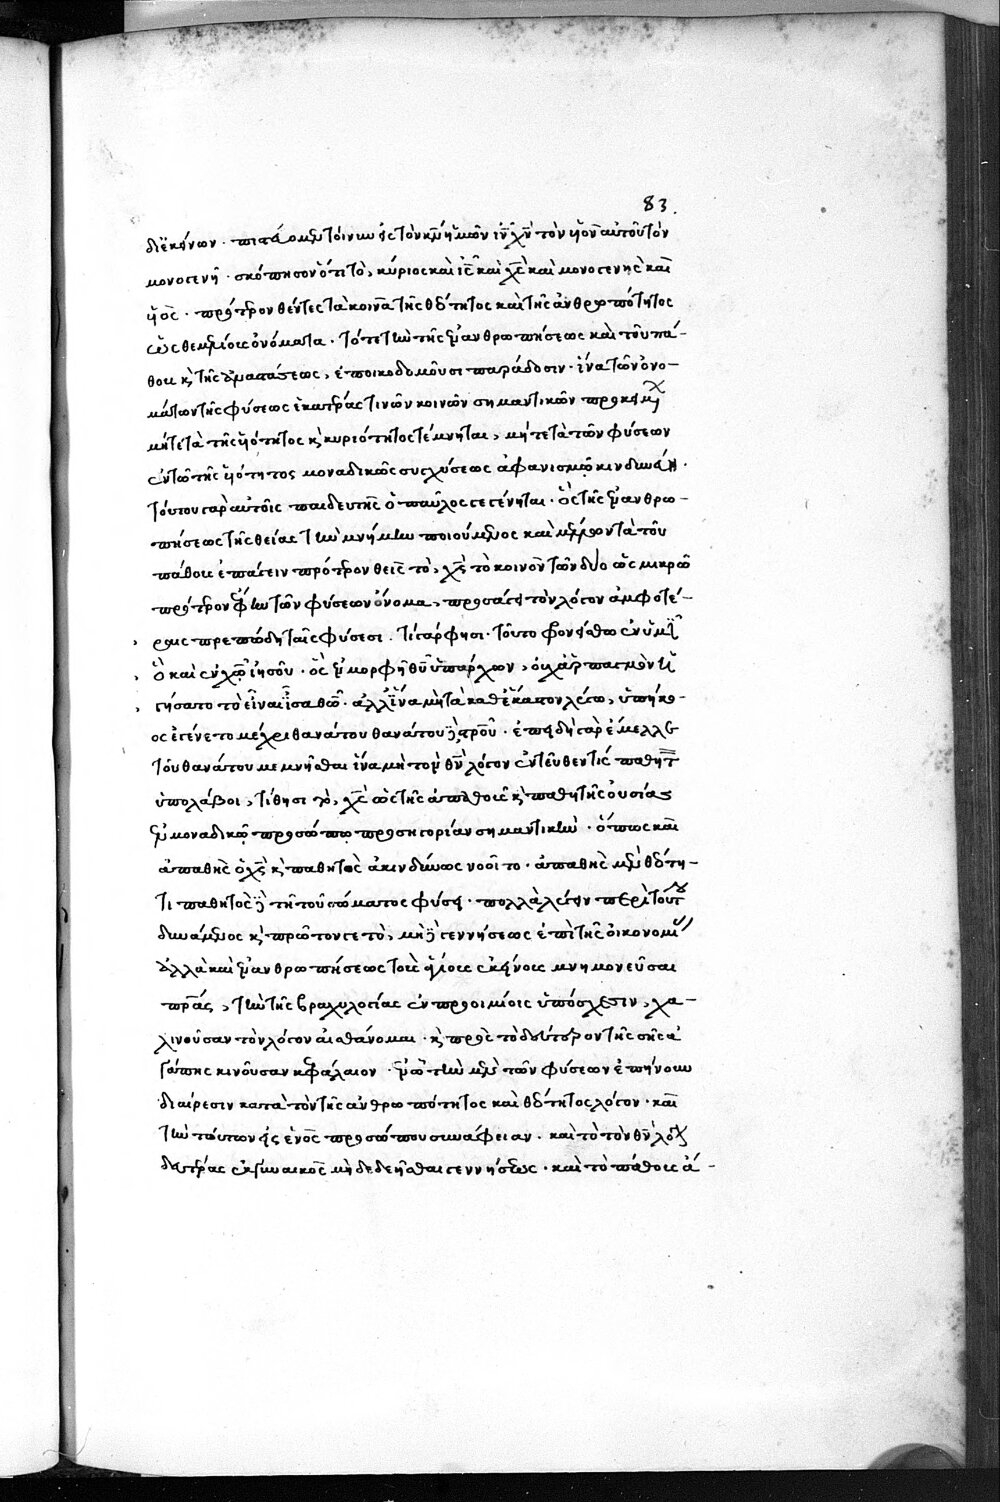 83.
δι᾽ ἐκείνων · πιστεύομεν τοίνυν εἰς τὸν κν̄ ἡμῶν ιν̄ χν̄ τὸν υἱὸν αὐτοῦ τὸν
μονογενῆ · σκόπησον ὅτι τὸ, κύριος καὶ ις̄ καὶ χς̄ καὶ μονογενὴς καὶ
υἱὸς · πρότερον θέντες τὰ κοινὰ τῆς θεότητος καὶ τῆς ἀνθρωπότητος
ὡς θεμελίους ὀνόματα · τότε τὴν τῆς ἐνανθρωπήσεως καὶ τοῦ πά-
θους κ̀ τῆς ἀναστάσεως, ἐποικοδομοῦσι παράδοσιν · ἵνα τῶν ὀνο-
μάτων τῆς φύσεως ἑκατέρας τινῶν κοινῶν σημαντικῶν προκειμένων
μήτε τὰ τῆς υἱότητος κ̀ κυριότητος τέμνηται, μήτε τὰ τῶν φύσεων
ἐν τῷ τῆς υἱότητος μοναδικῷ συγχύσεως ἀφανισμῷ κινδυνεύη ·
τούτου γὰρ αὐτοῖς παιδευτὴς ὁ παῦλος γεγένηται · ὃς τῆς ἐνανθρω-
πήσεως τῆς θείας τὴν μνήμην ποιούμενος καὶ μέλλων τὰ τοῦ
πάθους ἐπάγειν πρότερον θεὶς τὸ, χς̄ τὸ κοινὸν τῶν δύο ὡς μικρῷ
πρότερον ἔφην τῶν φύσεων ὄνομα, προσάγει τὸν λόγον ἀμφοτέ-
ραις πρεπώδη ταῖς φύσεσι · τί γάρ φησι · τοῦτο φρονείσθω ἐν ὑμῖν
ὃ καὶ ἐν χῷ ἰησοῦ · ὃς ἐν μορφῇ θῦ ὑπάρχων, οὐχ ἁρπαγμὸν ἡ-
γήσατο τὸ εἶναι ἴσα θῷ · ἀλλ᾽ ἵνα μὴ τὰ καθ᾽ ἕκαστον λέγω, ὑπήκο-
ος ἐγένετο μέχρι θανάτου θανάτου δὲ στροῦ · ἐπειδὴ γὰρ ἔμελλε
τοῦ θανάτου μεμνῆσθαι ἵνα μὴ τὸν θν̄ λόγον ἐντεῦθεν τις παθητὸν
ὑπολάβοι, τίθησι τὸ, χς̄ ὡς τῆς ἀπαθοῦς κ̀ παθητῆς οὐσίας
ἐν μοναδικῷ προσώπῳ προσηγορίαν σημαντικὴν · ὅπως καὶ
ἀπαθὴς ὁ χς̄ κ̀ παθητὸς ἀκινδύνως νοοῖτο · ἀπαθὴς μὲν θεότη-
τι παθητὸς δὲ τῇ τοῦ σώματος φύσει · πολλὰ λέγειν περὶ τούτου
δυνάμενος κ̀ πρῶτόν γε τὸ, μηδὲ γεννήσεως ἐπὶ τῆς οἰκονομίας
ἀλλὰ καὶ ἐνανθρωπήσεως τοὺς ἁγίους ἐκείνους μνημονεῦσαι
πρᾱς, τὴν τῆς βραχυλογίας ἐν προοιμίοις ὑπόσχεσιν, χα-
λινοῦσαν τὸν λόγον αἰσθάνομαι · κ̀ πρὸς τὸ δεύτερον τῆς σῆς ἀ
γάπης κινοῦσαν κεφάλαιον · ἐν ᾧ τὴν μὲν τῶν φύσεων ἐπῄνουν
διαίρεσιν κατὰ τὸν τῆς ἀνθρωπότητος καὶ θεότητος λόγον · καὶ
τὴν τούτων εἰς ἑνὸς προσώπου συνάφειαν · καὶ τὸ τὸν θν̄ λόγον
δευτέρας ἐκ γυναικὸς μὴ δεδεῆσθαι γεννήσεως · καὶ τὸ πάθους ἀ-